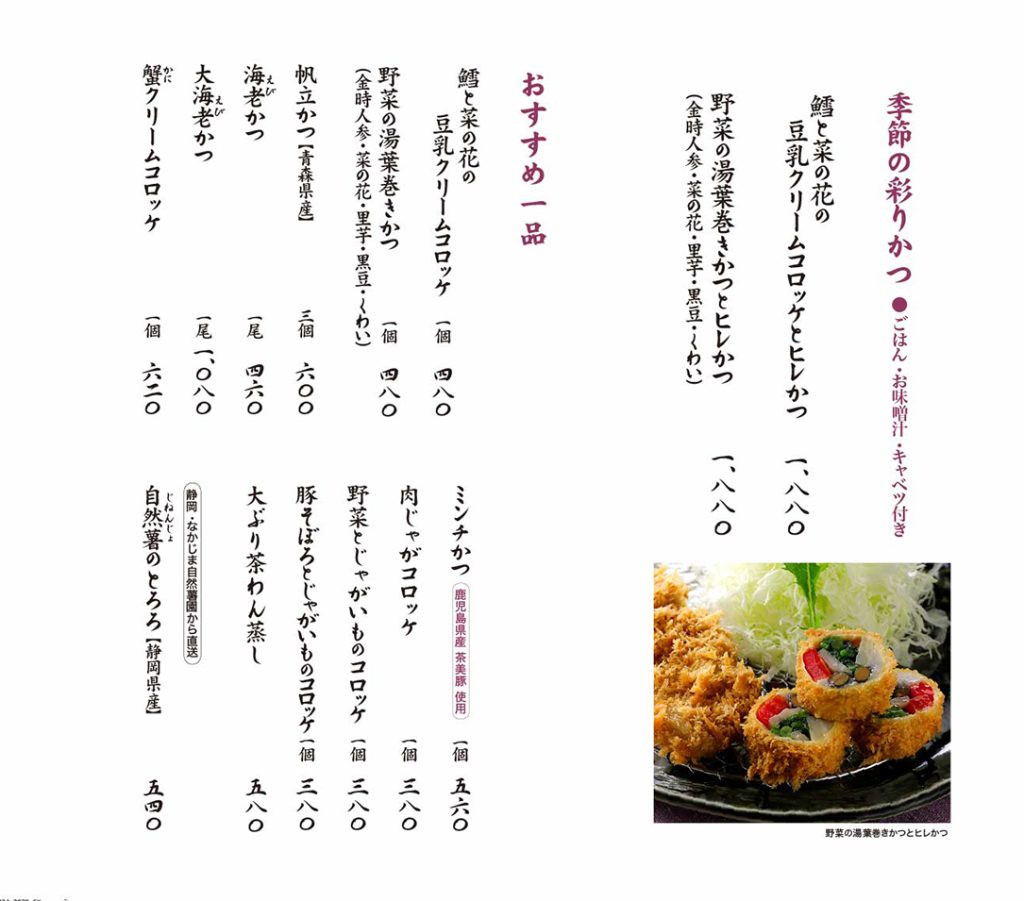 季節の彩りかつ ●ごはん・お味噌汁・キャベツ付き
鱈と菜の花の
豆乳クリームコロッケとヒレかつ 一、八八〇
野菜の湯葉巻きかつとヒレかつ 一、八八〇
(金時人参・菜の花・里芋・黒豆・くわい)
野菜の湯葉巻きかつとヒレかつ
おすすめ一品
鱈と菜の花の
豆乳クリームコロッケ 一個 四八〇
野菜の湯葉巻きかつ 一個 四八〇
(金時人参・菜の花・里芋・黒豆・くわい)
帆立かつ【青森県産】 三個 六〇〇
海老かつ 一尾 四六〇
えび
大海老かつ 一尾 一、〇八〇
えび
蟹クリームコロッケ 一個 六二〇
かに
ミンチかつ 鹿児島県産 茶美豚 使用 一個 五六〇
肉じゃがコロッケ 一個 三八〇
野菜とじゃがいものコロッケ 一個 三八〇
豚そぼろとじゃがいものコロッケ 一個 三八〇
大ぶり茶わん蒸し 五八〇
静岡・なかじま自然薯園から直送
自然薯のとろろ【静岡県産】 五四〇
じねんじょ